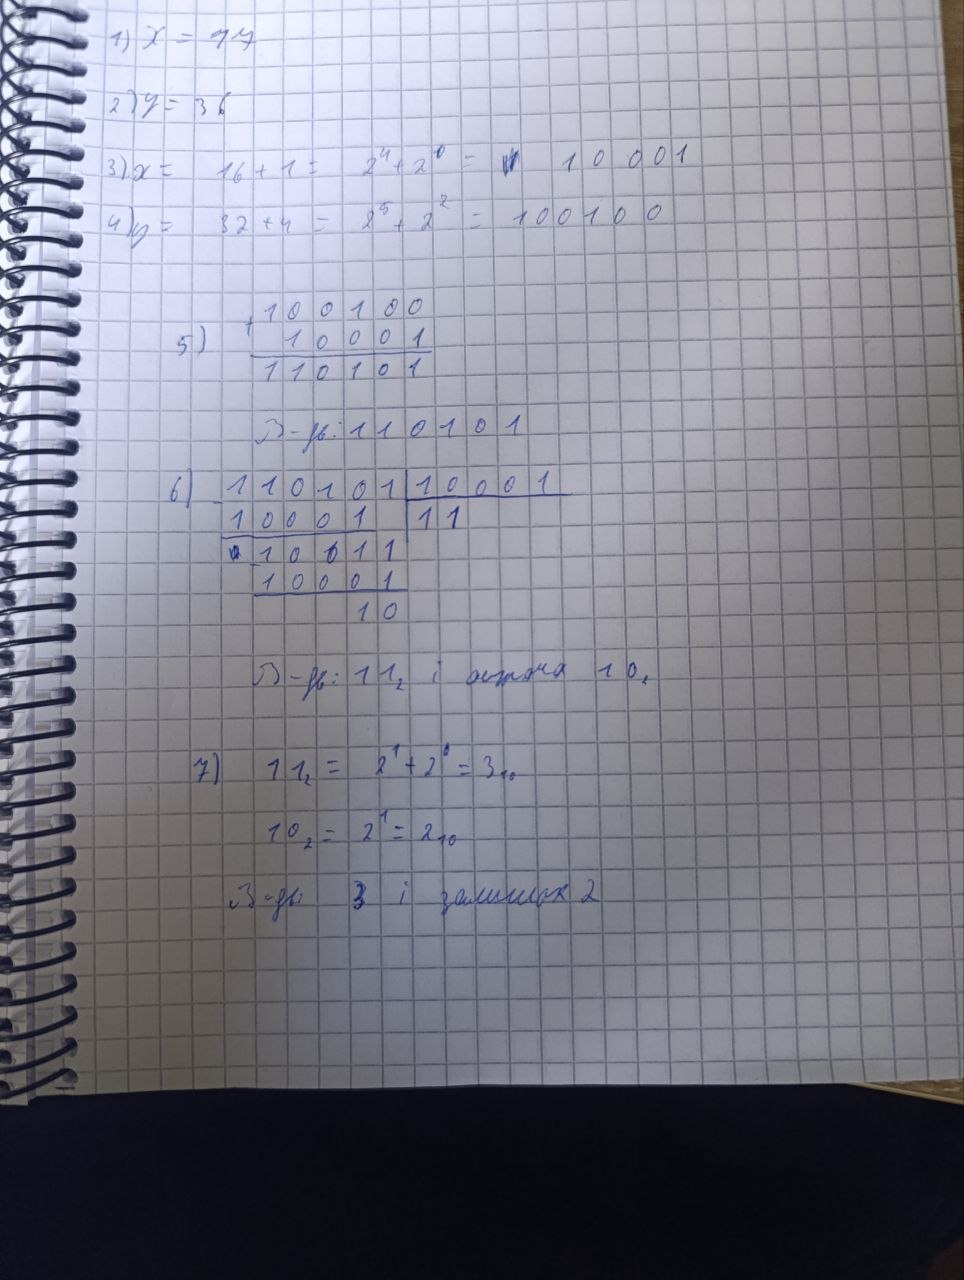 1) x = 17
2) y = 36
3) x = 16 + 1 = 2⁴ + 2⁰ = 10001
4) y = 32 + 4 = 2⁵ + 2² = 100100
5) + 100100
10001
110101
В-дь: 110101
6) - 110101 | 10001
10001 | 11
- 10011
10001
10
В-дь: 11₂ і остача 10₂
7) 11₂ = 2¹ + 2⁰ = 3₁₀
10₂ = 2¹ = 2₁₀
В-дь: 3 і залишок 2